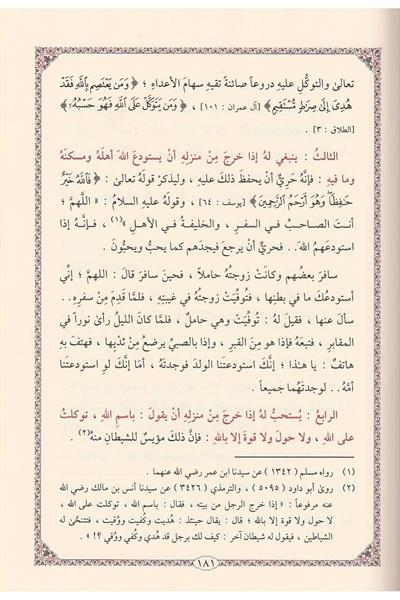 تعالىٰ والتوكُّلِ عليهِ دروعاً صائنةً تقيهِ سهامَ الأعداءِ ؛ ﴿ وَمَن يَعْتَصِم بِٱللَّهِ فَقَدْ
هُدِىَ إِلَىٰ صِرَٰطٍ مُّسْتَقِيمٍ﴾ [آل عمران : ١٠١] ، ﴿ وَمَن يَتَوَكَّلْ عَلَى ٱللَّهِ فَهُوَ حَسْبُهُۥٓ﴾
[الطلاق : ٣] .
الثالثُ : ينبغي لهُ إذا خرجَ مِنْ منزلِهِ أنْ يستودعَ اللهَ أهلَهُ ومسكنَهُ
وما فيهِ : فإنَّهُ حَرِيٌّ أنْ يحفظَ ذلكَ عليهِ ، وليذكرْ قولَهُ تعالىٰ : ﴿ فَٱللَّهُ خَيْرٌ
حَٰفِظًا وَهُوَ أَرْحَمُ ٱلرَّٰحِمِينَ﴾ [يوسف : ٦٤] ، وقولَهُ عليهِ السلامُ : « اللهمَّ ؛
أنتَ الصاحبُ في السفرِ ، والخليفةُ في الأهلِ »(١) ، فإنَّهُ إذا
استودعَهمُ اللهَ . . فحريٌّ أنْ يرجعَ فيجدَهم كما يحبُّ ويحبُّونَ .
سافرَ بعضُهم وكانَتْ زوجتُهُ حاملاً ، فحينَ سافرَ قالَ : اللهمَّ ؛ إنِّي
أستودعُكَ ما في بطنِها ، فتُوفِّيَتْ زوجتُهُ في غيبتِهِ ، فلمَّا قدِمَ مِنْ سفرِهِ . .
سألَ عنها ، فقيلَ لهُ : تُوفِّيَتْ وهيَ حاملٌ ، فلمَّا كانَ الليلُ رأىٰ نوراً في
المقابرِ ، فتبعَهُ فإذا هوَ مِنَ القبرِ ، وإذا بالصبيِّ يرضعُ مِنْ ثديِها ، فهتفَ بهِ
هاتفٌ : يا هـٰذا ؛ إنَّكَ استودعتَنا الولدَ فوجدتَهُ ، أمَا إنَّكَ لوِ استودعتَنا
أمَّهُ . . لوجدتَهُما جميعاً .
الرابعُ : يُستحبُّ لهُ إذا خرجَ مِنْ منزلِهِ أنْ يقولَ : باسمِ اللهِ ، توكلتُ
على اللهِ ، ولا حولَ ولا قوةَ إلا باللهِ : فإنَّ ذلكَ مؤيسٌ للشيطانِ منهُ(٢)
(١) رواه مسلم ( ١٣٤٢ ) عن سيدنا ابن عمر رضي الله عنهما .
(٢) روىٰ أبو داود ( ٥٠٩٥ ) ، والترمذي ( ٣٤٢٦ ) عن سيدنا أنس بن مالك رضي الله
عنه مرفوعاً : « إذا خرج الرجل من بيته ، فقال : باسم الله ، توكلت على الله ،
لا حول ولا قوة إلا بالله ؛ قال : يقال حينئذ : هُديت وكُفيت ووُقيت ، فتتنحَّىٰ له
الشياطين ، فيقول له شيطان آخر : كيف لك برجل قد هُدي وكُفي ووُقي ؟! » .
١٨١